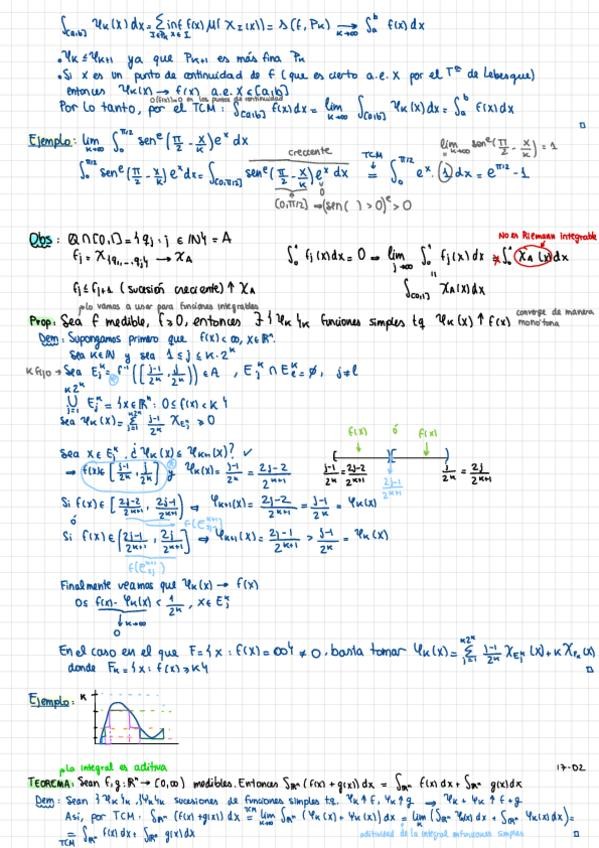 ∫_[a,b] Ψk(x)dx = Σ_{I∈Pk} inf_{x∈I} f(x) μ(χ_I(x)) = s(f, Pk) →_{k→∞} ∫_a^b f(x)dx
• Ψk ≤ Ψk+1 ya que Pk+1 es más fina Pk
• Si x es un punto de continuidad de f (que es cierto a.e. x por el Tª de Lebesgue)
entonces Ψk(x) → f(x) a.e. x ∈ [a,b]
en los puntos de continuidad
Por lo tanto, por el TCM: ∫_[a,b] f(x)dx = lim_{k→∞} ∫_[a,b] Ψk(x)dx = ∫_a^b f(x)dx
Ejemplo: lim_{k→∞} ∫_0^{π/2} sen^e(π/2 - x/k) e^x dx
creciente
lim_{k→∞} sen^e(π/2 - x/k) = 1
∫_0^{π/2} sen^e(π/2 - x/k) e^x dx = ∫_[0,π/2] sen^e(π/2 - x/k) e^x dx =^{TCM} ∫_0^{π/2} e^x · 1 dx = e^{π/2} - 1
[0,π/2] ⇒ (sen( ) > 0)^e > 0
No es Riemann integrable
Obs: Q∩[0,1] = {qj : j ∈ N} = A
∫_0^1 fj(x)dx = 0 = lim_{j→∞} ∫_0^1 fj(x)dx ≠ ∫_0^1 χA(x)dx
fj = χ{q1,...,qj} → χA
fj ≤ fj+1 (sucesión creciente) ↑ χA
∫_[0,1] χA(x)dx
Lo vamos a usar para funciones integrables
Prop: Sea f medible, f ≥ 0, entonces ∃ {Ψk}k funciones simples tq Ψk(x) ↑ f(x) converge de manera monótona
Dem: Supongamos primero que f(x) < ∞, x∈R^n.
Sea k∈N y sea 1 ≤ j ≤ k·2^k
k fijo → Sea Ej^k = f^-1([j-1/2^k, j/2^k)) ∈ A, Ej^k ∩ El^k = ∅, j≠l
∪_{j=1}^{k2^k} Ej^k = {x∈R^n : 0 ≤ f(x) < k}
Sea Ψk(x) = Σ_{j=1}^{k2^k} j-1/2^k χ_{Ej^k} ≥ 0
f(x) ó f(x)
Sea x∈Ej^k, ¿Ψk(x) ≤ Ψk+1(x)? ✓
⇒ f(x)∈[j-1/2^k, j/2^k) y Ψk(x) = j-1/2^k = 2j-2/2^{k+1}
j-1/2^k = 2j-2/2^{k+1} 2j-1/2^{k+1} j/2^k = 2j/2^{k+1}
Si f(x)∈[2j-2/2^{k+1}, 2j-1/2^{k+1}) ⇒ Ψk+1(x) = 2j-2/2^{k+1} = j-1/2^k = Ψk(x)
ó
Si f(x)∈[2j-1/2^{k+1}, 2j/2^{k+1}) ⇒ Ψk+1(x) = 2j-1/2^{k+1} > j-1/2^k = Ψk(x)
Finalmente veamos que Ψk(x) → f(x)
0 ≤ f(x) - Ψk(x) < 1/2^k, x∈Ej^k
↓ k→∞
0
En el caso en el que F = {x : f(x) = ∞} ≠ ∅, basta tomar Ψk(x) = Σ_{j=1}^{k2^k} j-1/2^k χ_{Ej^k}(x) + k χ_{Fk}(x)
donde Fk = {x : f(x) ≥ k}
Ejemplo: k
Lo integral es aditiva
17-02
TEOREMA: Sean f, g: R^n → [0,∞) medibles. Entonces ∫_{R^n} (f(x)+g(x))dx = ∫_{R^n} f(x)dx + ∫_{R^n} g(x)dx
Dem: Sean {Ψk}k, {φk}k sucesiones de funciones simples tq. Ψk ↑ f, φk ↑ g ⇒ Ψk + φk ↑ f+g
Así, por TCM. ∫_{R^n} (f(x)+g(x))dx =^{TCM} lim_{k→∞} ∫_{R^n} (Ψk(x)+φk(x))dx = lim (∫_{R^n} Ψk(x)dx + ∫_{R^n} φk(x)dx) =
=_{TCM} ∫_{R^n} f(x)dx + ∫_{R^n} g(x)dx
aditividad de la integral en funciones simples